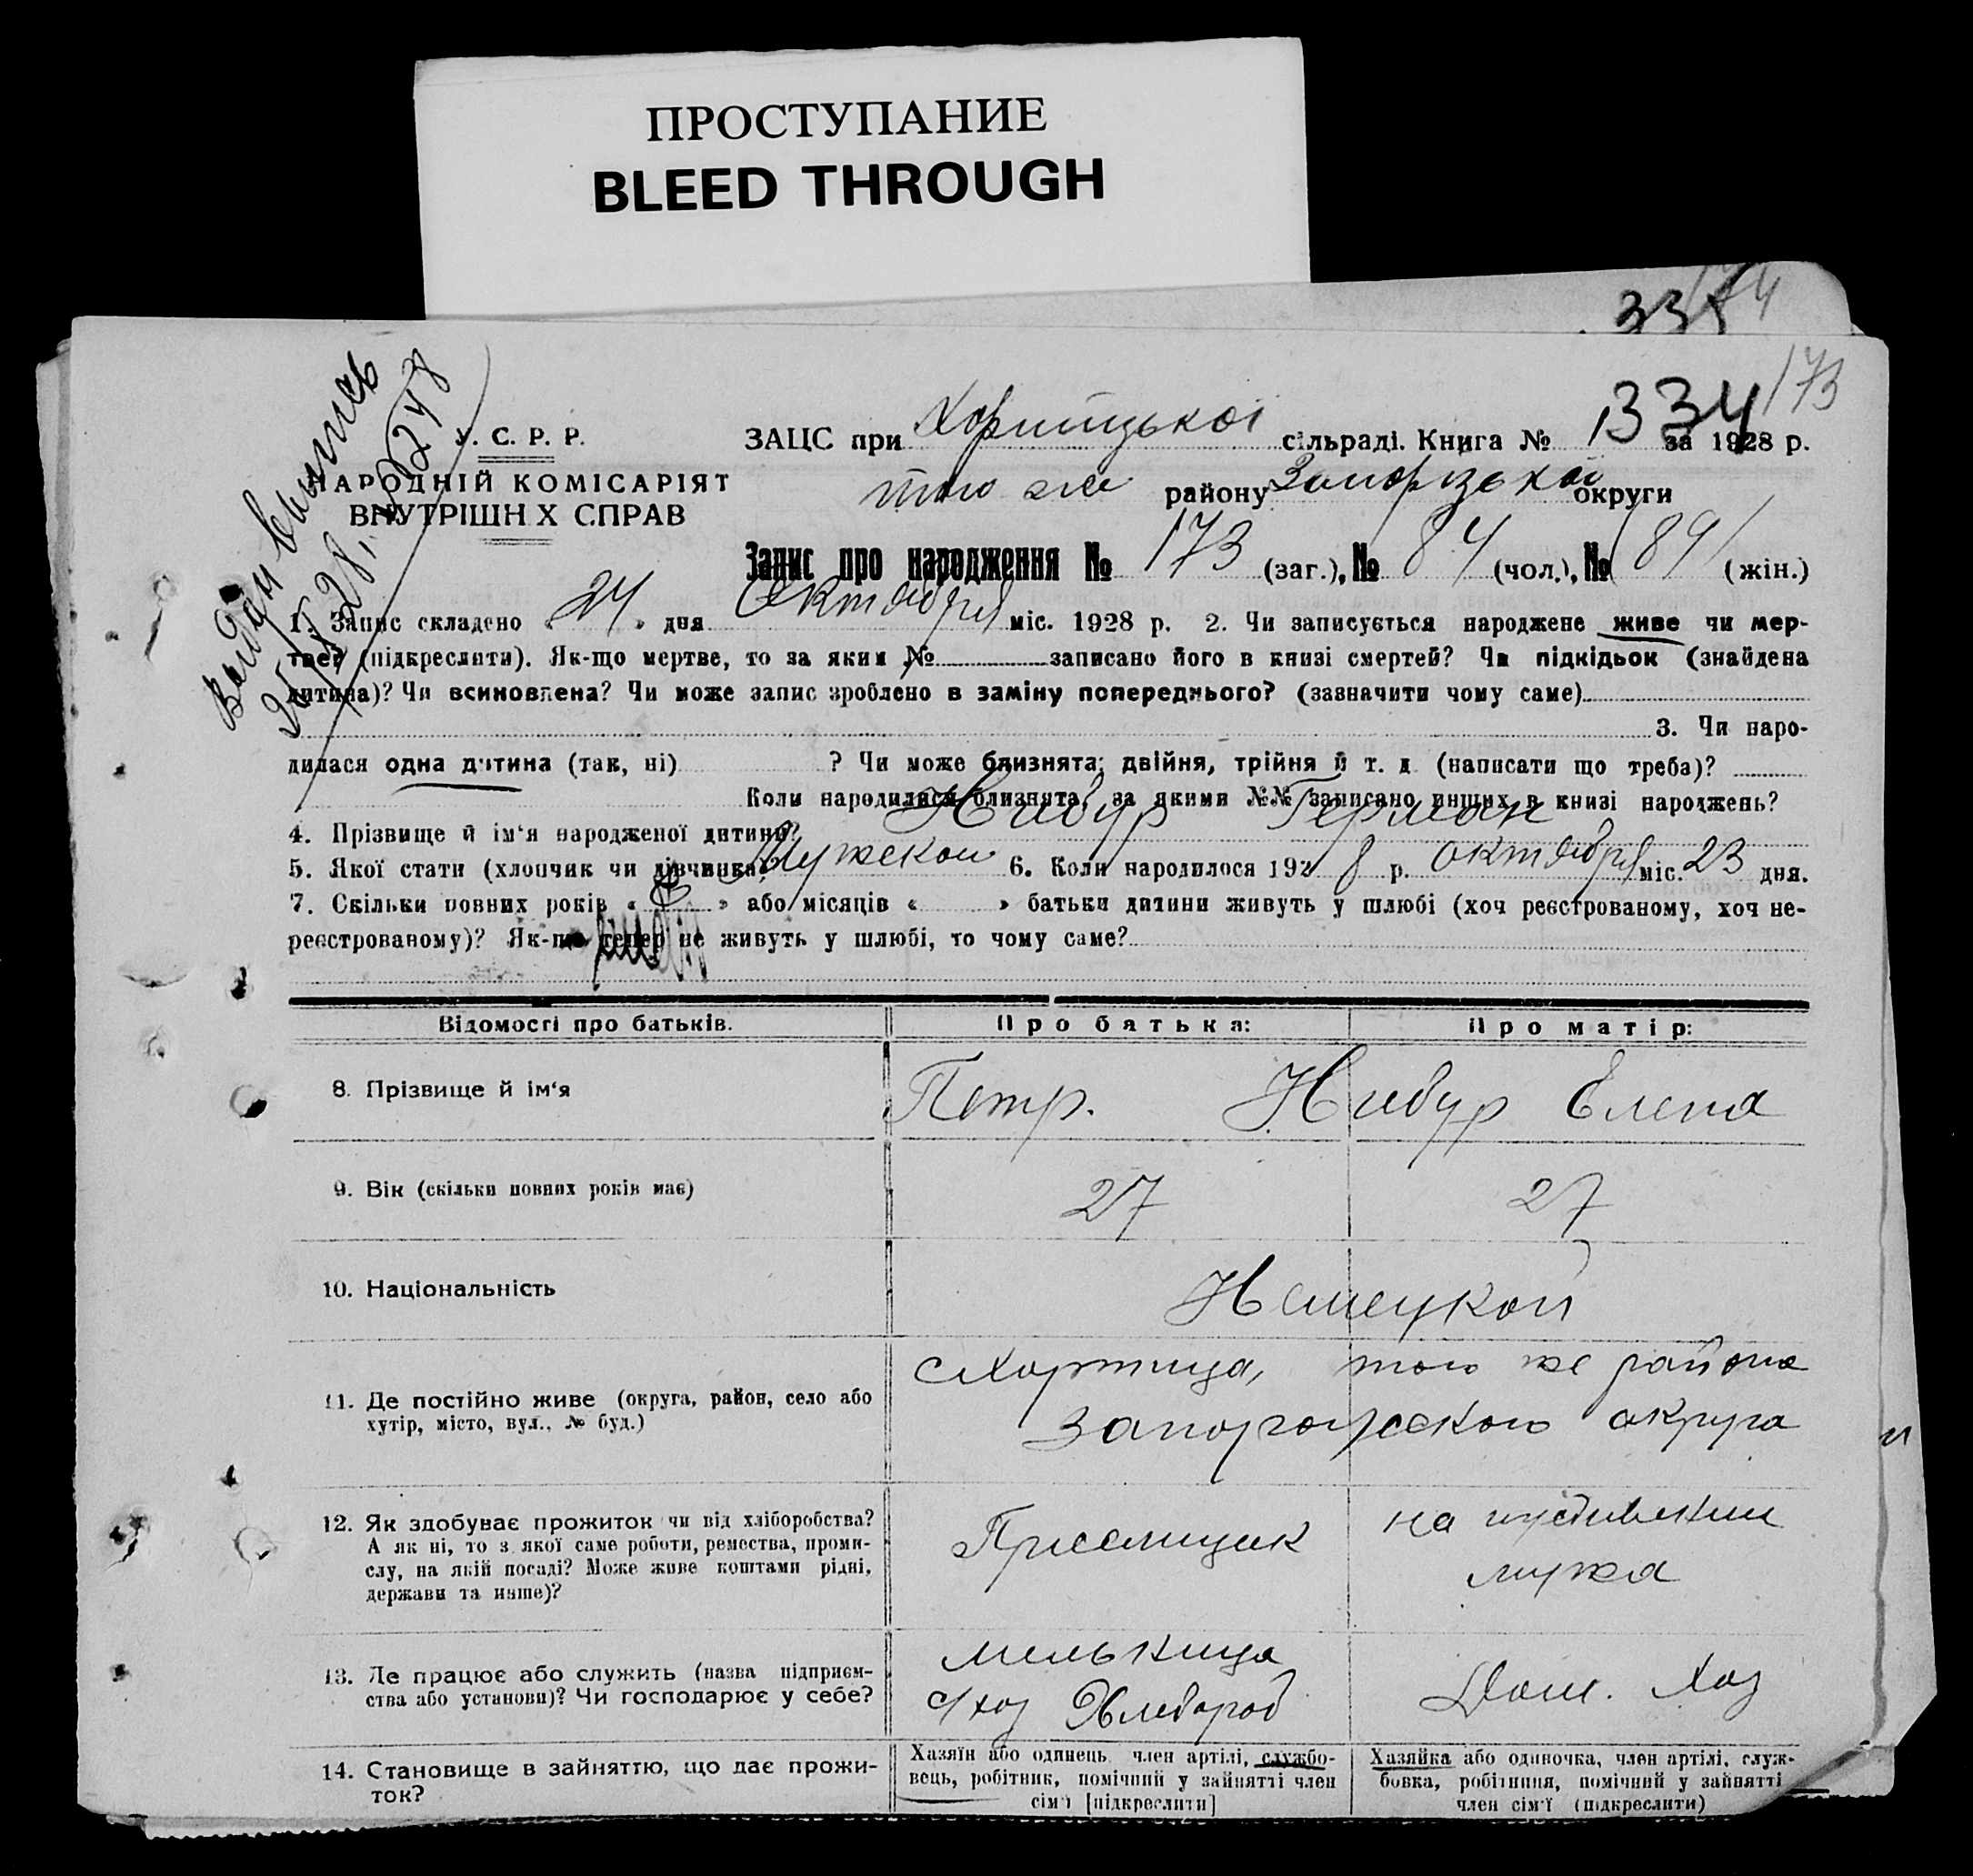 ПРОСТУПАНИЕ
BLEED THROUGH
174
335
173
334
Выдан выпись
У. С. Р. Р.
НАРОДНІЙ КОМІСАРІЯТ
ВНУТРІШН Х СПРАВ
ЗАЦС при Хортицької сільраді. Книга № 1 за 1928 р.
того же району Запорізької округи
Запис про народження № 173 (заг.), № 84 (чол.), № 89 (жін.)
1. Запис складено « 24 » дня Октября міс. 1928 р. 2. Чи записується народжене живе чи мер-
тве? (підкреслити). Як-що мертве, то за яким № записано його в книзі смертей? Чи підкідьок (знайдена
дитина)? Чи всиновлена? Чи може запис зроблено в заміну попереднього? (зазначити чому саме)
3. Чи наро-
дилася одна дитина (так, ні) ? Чи може близнята; двійня, трійня й т. д. (написати що треба)?
Коли народилися близнята, за якими №№ записано инших в книзі народжень?
4. Прізвище й ім'я народженої дитини? Нибур Герман
5. Якої стати (хлопчик чи дівчинка) Мужской 6. Коли народилося 1928 р. октября міс. 23 дня.
7. Скільки повних років « 6 » або місяців « » батьки дитини живуть у шлюбі (хоч реєстрованому, хоч не-
реєстрованому)? Як-що тепер не живуть у шлюбі, то чому саме?
Відомості про батьків. Про батька: Про матір:
8. Прізвище й ім'я Петр. Нибур Елена
9. Вік (скільки повних років має) 27 27
10. Національність Немецкой
11. Де постійно живе (округа, район, село або
хутір, місто, вул., № буд.)
с Хортица, того же района
Запорожского округа
12. Як здобуває прожиток чи від хліборобства?
А як ні, то з якої саме роботи, ремества, проми-
слу, на якій посаді? Може живе коштами рідні,
держави та инше)?
Приемщик
на иждивении
мужа
13. Де працює або служить (назва підприєм-
ства або установи)? Чи господарює у себе?
мельница
с/хоз Хлебороб
Дом. Хоз
14. Становище в зайняттю, що дає прожи-
ток?
Хазяїн або одинець член артілі, службо-
вець, робітник, помічний у зайнятті член
сім'ї [підкреслити]
Хазяйка або одиночка, член артілі, служ-
бовка, робітниця, помічний у зайнятті
член сім'ї (підкреслити)